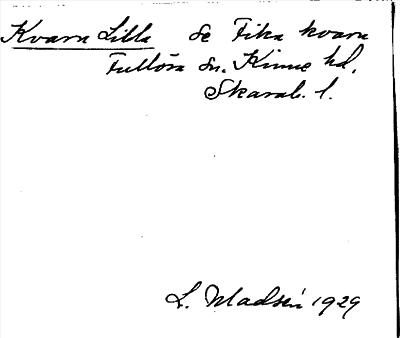 Kvarn Lilla se Fika kvarn
Fullösa sn. Kinne hd.
Skarab. l.
L. Madsén 1929